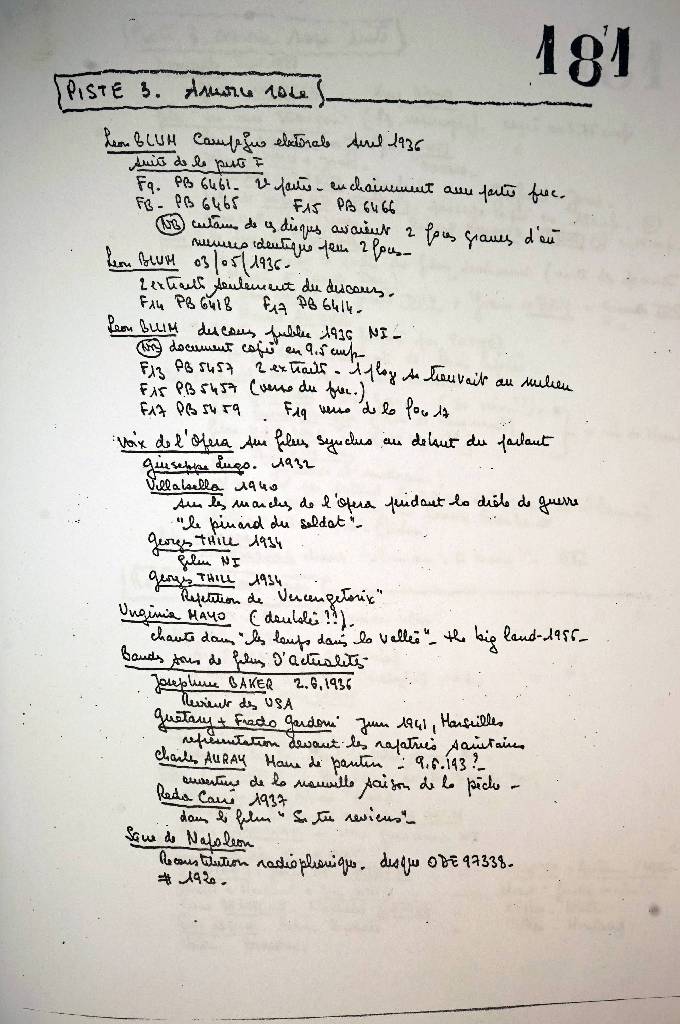 181
PISTE 3. Amorce rose
Leon BLUM Campagne electorale Avril 1936
suite de la piste F
F9. PB 6461. 2e partie - enchainement avec partie prec.
F8- PB 6465 F15 PB 6466
NB certains de ces disques avaient 2 faces gravés d'où
numero identique pour 2 faces_
Leon BLUM 03/05/1936_
2 extraits seulement du discours.
F14 PB 6418 F17 PB 6414_
Leon BLUM discours public 1936 NI_
NB document copié en 9.5 cm/s
F13 PB 5457 2 extraits - 1 plog se trouvait au milieu
F15 PB 5457 (verso du prec.)
F17 PB 5459 F19 verso de la face 17
Voix de l'Opera sur films synchro au debut du parlant
Giuseppe Lugo. 1932
Villabella 1940
sur les marches de l'Opera pendant la drôle de guerre
"le pinard du soldat"_
Georges THILL 1934
film NI
Georges THILL 1934
Repetition de Vercengetorix"
Virginia MAYO (doublée ??)_
chante dans "les loups dans la vallée"_ the big land_1956_
Bandes sons de films D'Actualités
Josephine BAKER 2.6.1936
Revient des USA
Guétary + Fredo Gardoni Juin 1941, Marseilles
représentation devant les rapatriés sanitaires
Charles AURAY Maire de pantin - 9.6.193?_
ouverture de la nouvelle saison de la pêche -
Reda Caire 1937
dans le film "Si tu reviens"_
Sacre de Napoleon
Reconstitution radiophonique. disque ODE 97338_
# 1920.